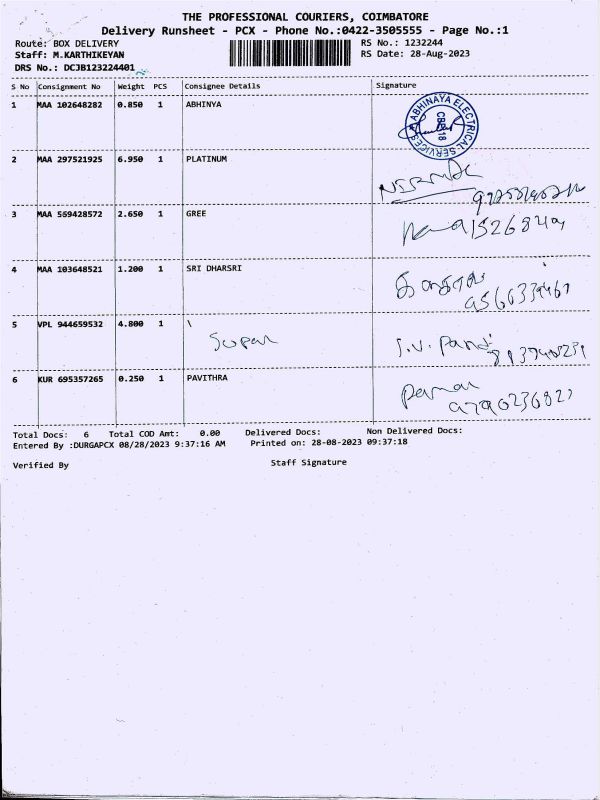 THE PROFESSIONAL COURIERS, COIMBATORE
Delivery Runsheet - PCX - Phone No.:0422-3505555 - Page No.:1
Route: BOX DELIVERY RS No.: 1232244
Staff: M.KARTHIKEYAN RS Date: 28-Aug-2023
DRS No.: DCJB123224401
S No Consignment No Weight PCS Consignee Details Signature
1 MAA 102648282 0.850 1 ABHINYA
ABHINAYA ELECTRICAL SERVICES
2 MAA 297521925 6.950 1 PLATINUM
3 MAA 569428572 2.650 1 GREE
4 MAA 103648521 1.200 1 SRI DHARSRI
5 VPL 944659532 4.800 1 \
Super
6 KUR 695357265 0.250 1 PAVITHRA
Total Docs: 6 Total COD Amt: 0.00 Delivered Docs: Non Delivered Docs:
Entered By :DURGAPCX 08/28/2023 9:37:16 AM Printed on: 28-08-2023 09:37:18
Verified By Staff Signature